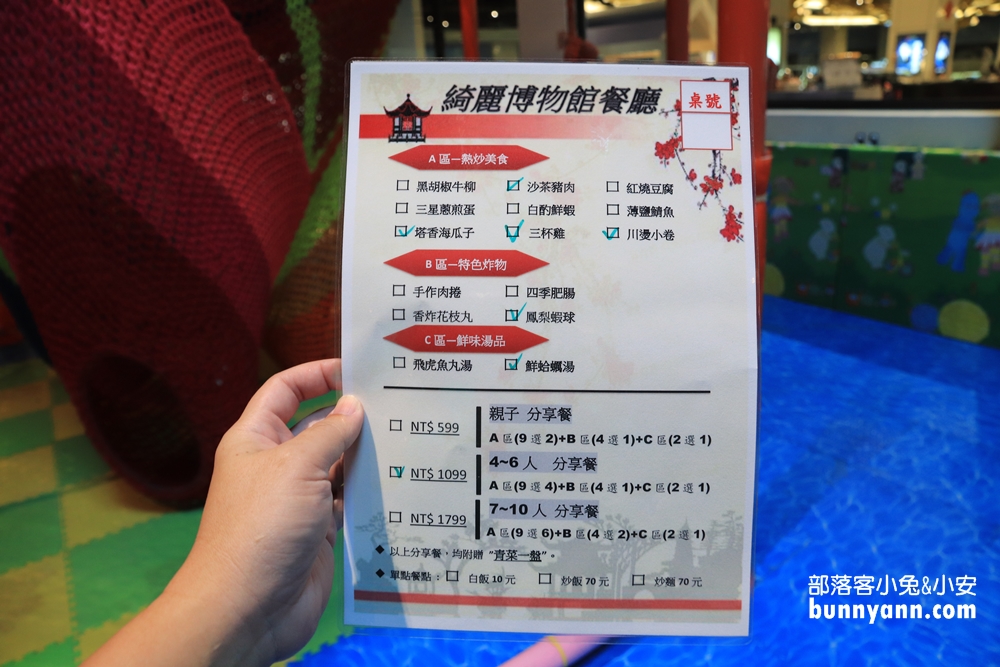 綺麗博物館餐廳
桌號
A 區—熱炒美食
黑胡椒牛柳 沙茶豬肉 紅燒豆腐
三星蔥煎蛋 白酌鮮蝦 薄鹽鯖魚
塔香海瓜子 三杯雞 川燙小卷
B 區—特色炸物
手作肉捲 四季肥腸
香炸花枝丸 鳳梨蝦球
C 區—鮮味湯品
飛虎魚丸湯 鮮蛤蠣湯
親子 分享餐
NT$ 599
A 區(9 選 2)+B 區(4 選 1)+C 區(2 選 1)
4~6 人 分享餐
NT$ 1099
A 區(9 選 4)+B 區(4 選 1)+C 區(2 選 1)
7~10 人 分享餐
NT$ 1799
A 區(9 選 6)+B 區(4 選 2)+C 區(2 選 1)
◆ 以上分享餐，均附贈 "青菜一盤"。
◆ 單點餐點： 白飯 10 元 炒飯 70 元 炒麵 70 元
部落客小兔&小安
bunnyann.com